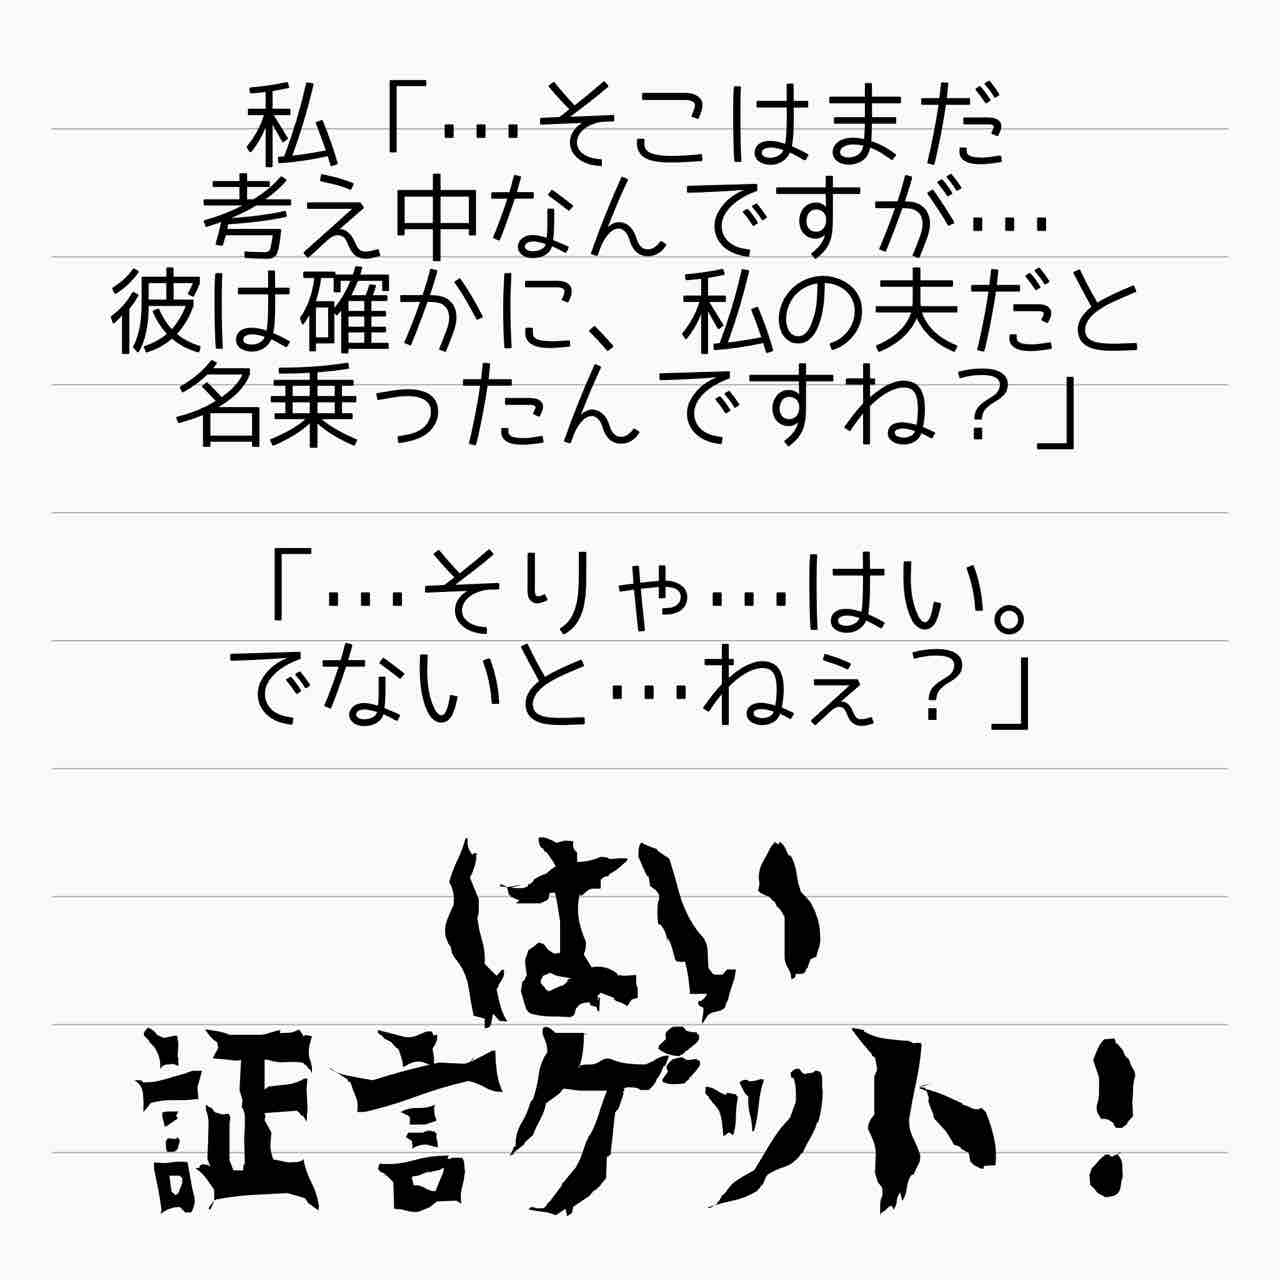 私「…そこはまだ
考え中なんですが…
彼は確かに、私の夫だと
名乗ったんですね？」
「…そりゃ…はい。
でないと…ねぇ？」
はい
証言ゲット！